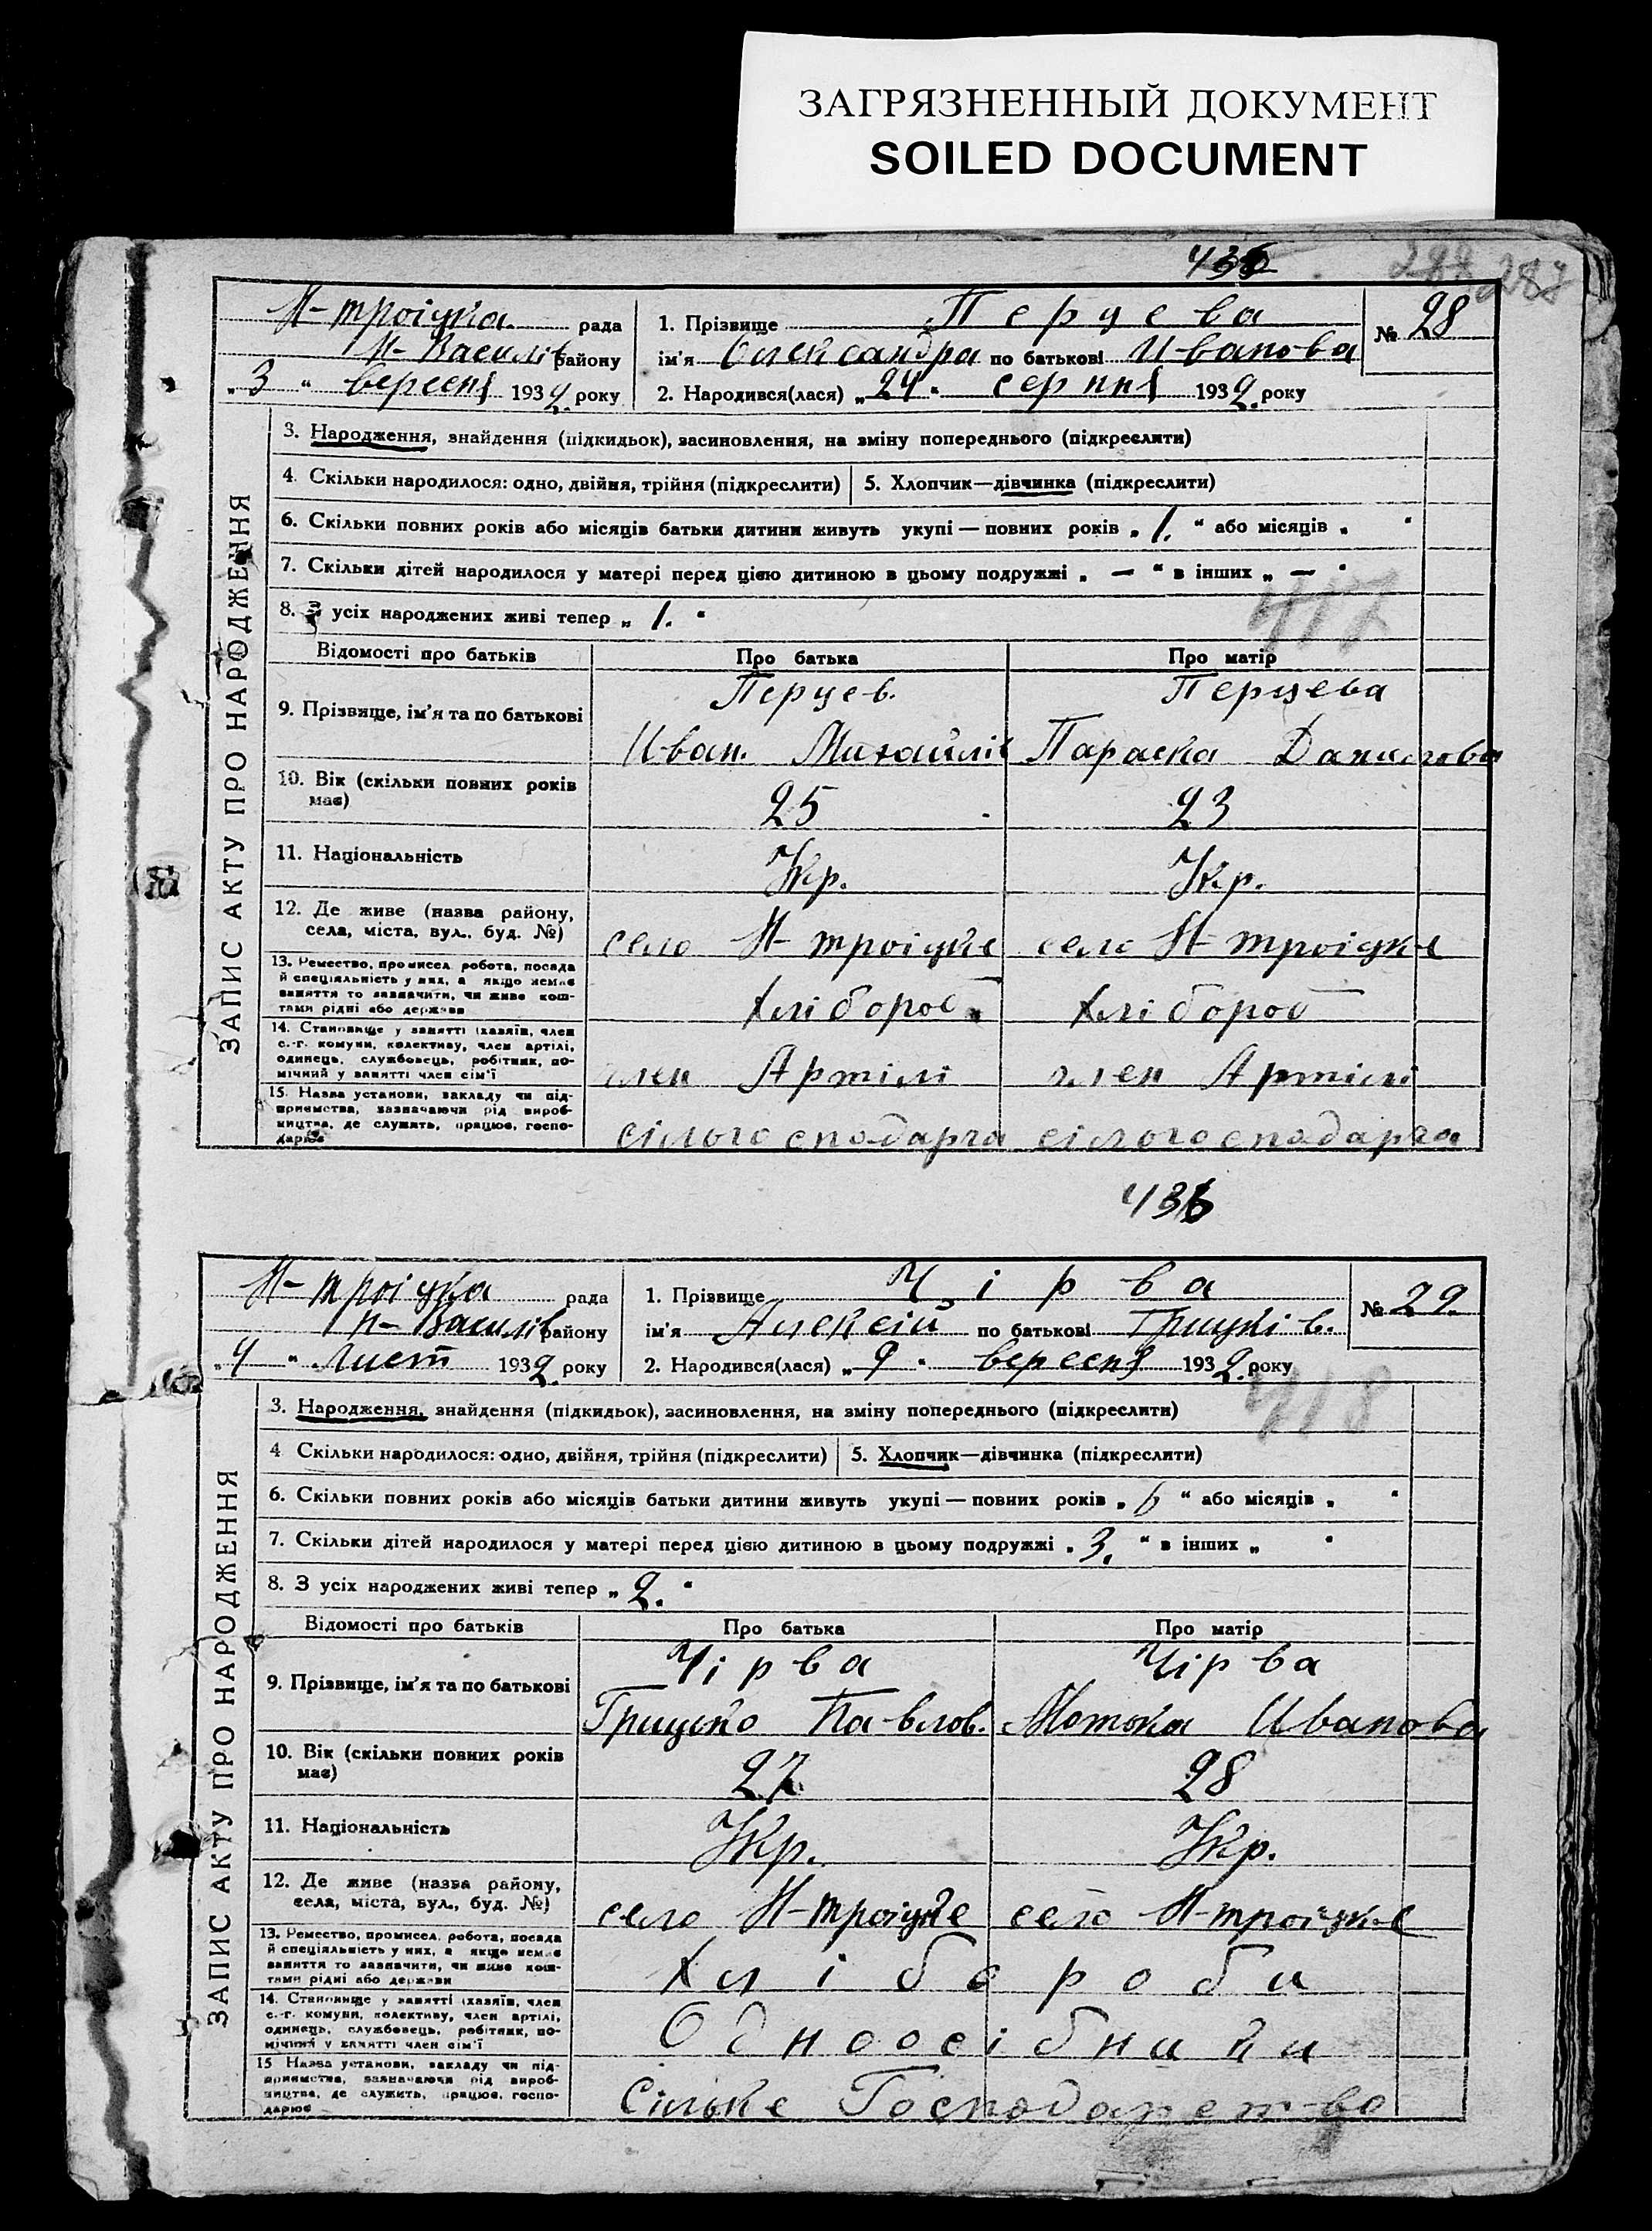 ЗАГРЯЗНЕННЫЙ ДОКУМЕНТ
SOILED DOCUMENT
436
287
ЗАПИС АКТУ ПРО НАРОДЖЕННЯ
Н-троіцка рада
Н-Василів району
„3“ вересня 1932 року
1. Прізвище Перцева
ім'я Олександра по батькові Иванова
№ 28
2. Народився(лася) „24“ серпня 1932 року
3. Народження, знайдення (підкидьок), засиновлення, на зміну попереднього (підкреслити)
4. Скільки народилося: одно, двійня, трійня (підкреслити) 5. Хлопчик—дівчинка (підкреслити)
6. Скільки повних років або місяців батьки дитини живуть укупі — повних років „1.“ або місяців „ “
7. Скільки дітей народилося у матері перед цією дитиною в цьому подружжі „—“ в інших „—“
417
8. З усіх народжених живі тепер „1.“
Відомості про батьків Про батька Про матір
9. Прізвище, ім'я та по батькові Перцев. Перцева
Иван. Михайлів Параска Данилова
10. Вік (скільки повних років має) 25 23
11. Національність Укр. Укр.
12. Де живе (назва району, села, міста, вул., буд. №) село Н-троіцке село Н-троіцке
13. Ремество, промисел, робота, посада й спеціяльність у них, а якщо немає заняття то зазначити, чи живе коштами рідні або держави Хлібороб Хлібороб
14. Становище у занятті (хазяїн, член с.-г. комуни, колективу, член артілі, одинець, службовець, робітник, помічний у занятті член сім'ї член Артілі член Артілі
15. Назва установи, закладу чи підприємства, зазначаючи рід виробництва, де служить, працює, господарює сільгосподарча сільгосподарча
436
ЗАПИС АКТУ ПРО НАРОДЖЕННЯ
Н-троіцка рада
Н-Василів району
„4“ Лист 1932 року
1. Прізвище Чірва
ім'я Алексій по батькові Грицків.
№ 29.
2. Народився(лася) „9“ вересня 1932 року
418
3. Народження, знайдення (підкидьок), засиновлення, на зміну попереднього (підкреслити)
4 Скільки народилося: одно, двійня, трійня (підкреслити) 5. Хлопчик—дівчинка (підкреслити)
6. Скільки повних років або місяців батьки дитини живуть укупі — повних років „6“ або місяців „ “
7. Скільки дітей народилося у матері перед цією дитиною в цьому подружжі „3.“ в інших „ “
8. З усіх народжених живі тепер „2.“
Відомості про батьків Про батька Про матір
9. Прізвище, ім'я та по батькові Чірва Чірва
Грицько Павлов. Мотька Иванова
10. Вік (скільки повних років має) 27 28
11. Національність Укр. Укр.
12. Де живе (назва району, села, міста, вул., буд. №) село Н-троіцке село Н-троіцке
13. Ремество, промисел, робота, посада й спеціяльність у них, а якщо немає заняття то зазначити, чи живе коштами рідні або держави Хлібороби
14. Становище у занятті (хазяїн, член с.-г. комуни, колективу, член артілі, одинець, службовець, робітник, помічний у занятті член сім'ї Одноосібники
15 Назва установи, закладу чи підприємства, зазначаючи рід виробництва, де служить, працює, господарює Сільке Господарство